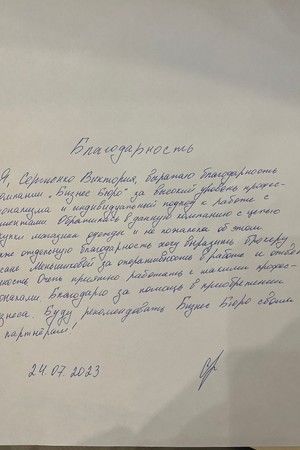 Благодарность
Я, Сергиенко Виктория, выражаю благодарность
компании „Бизнес Бюро" за высокий уровень профес-
ионализма и индивидуальный подход к работе с
клиентами. Обратилась в данную компанию с целью
купки магазина одежды и не пожалела об этом
кже отдельную благодарность хочу выразить брокеру
сане Меньшиковой за оперативность в работе и отзы
ность. Очень приятно работать с такими профес-
оналами. Благодарю за помощь в приобретении
знеса. Буду рекомендовать Бизнес Бюро своим
партнёрам!
24.07.2023